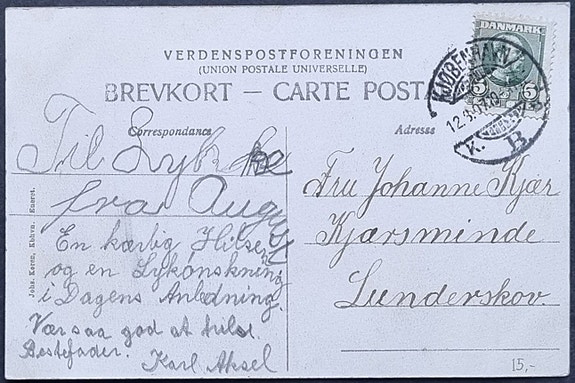 VERDENSPOSTFORENINGEN
(UNION POSTALE UNIVERSELLE)
BREVKORT — CARTE POSTA
DANMARK
5 5
KJØBENHAVN
12.8.07
K. B.
Correspondance
Adresse
Til Lykke
fra August
En kærlig Hilsen
og en Lykønskning
i Dagens Anledning.
Vær saa god at hilse
Bestefader.
Karl Aksel
Fru Johanne Kjær
Kjærsminde
Lunderskov.
Johs. Koren, Kbhvn. Eneret.
15,-